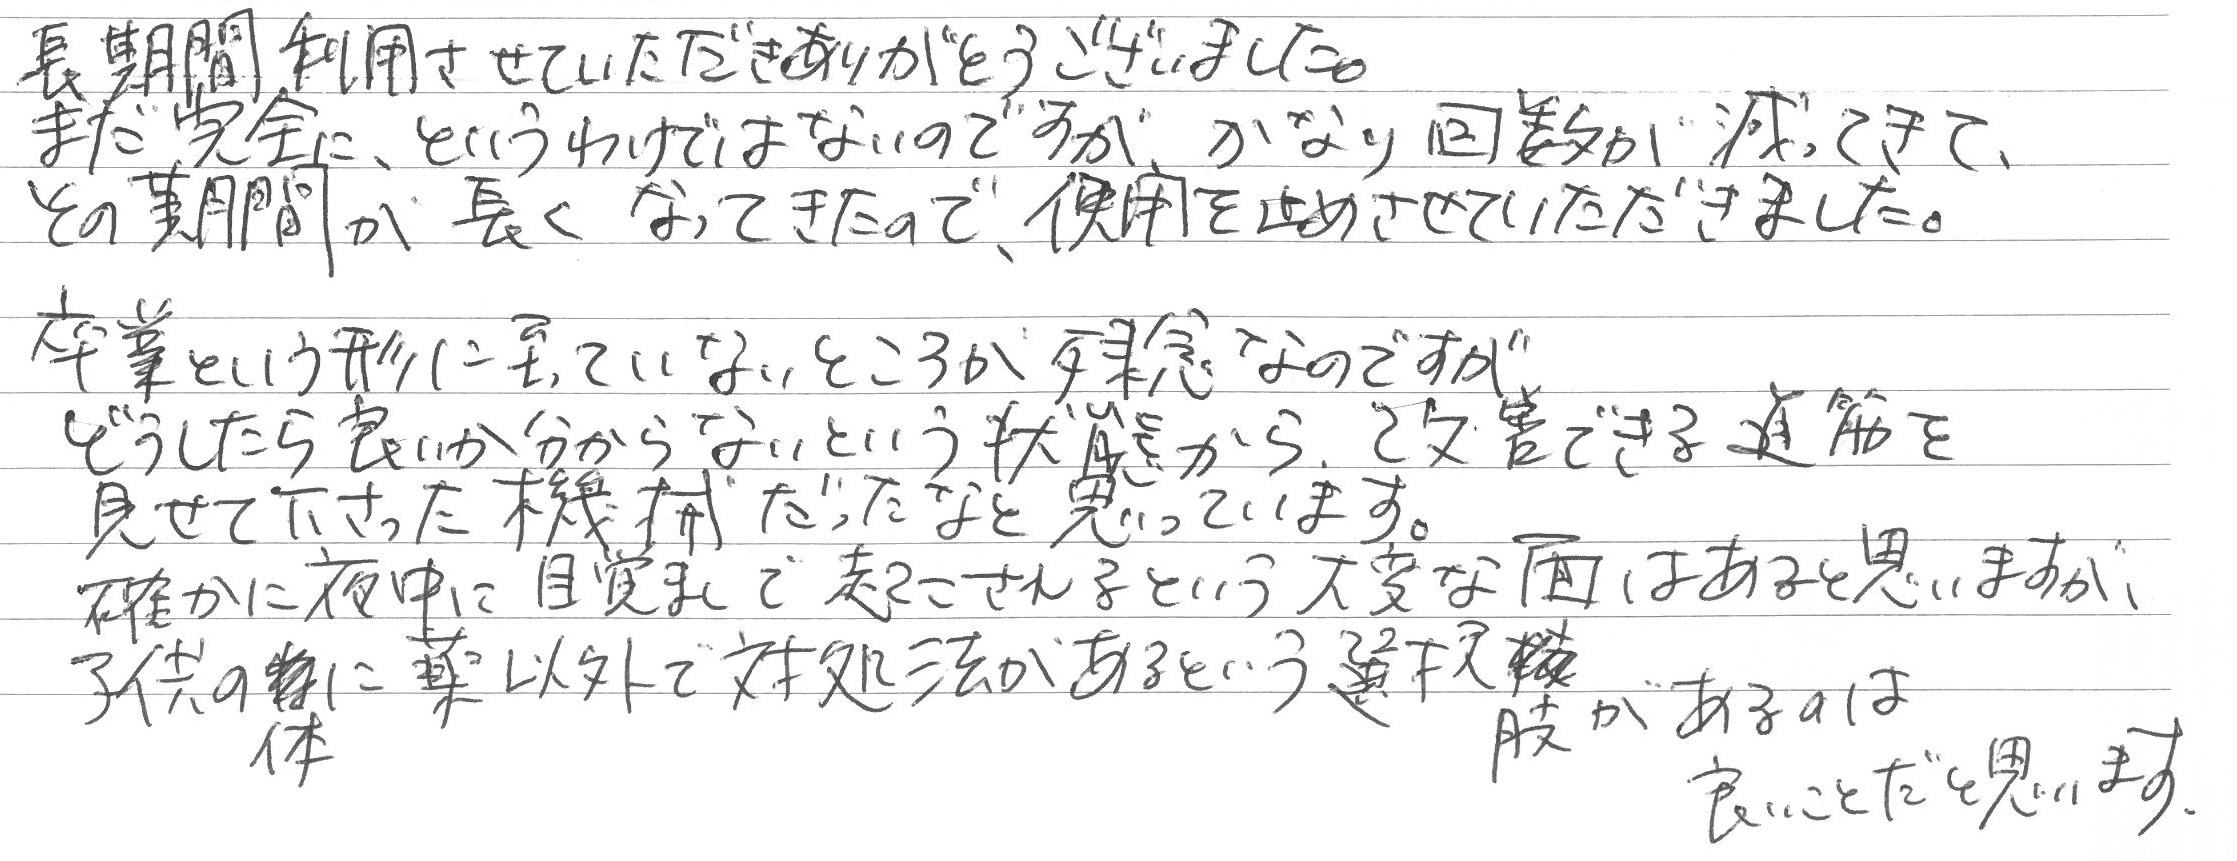 長期間利用させていただきありがとうございました。
まだ完全に、というわけではないのですが、かなり回数が減ってきて、
その期間が長くなってきたので、使用を止めさせていただきました。
卒業という形に至っていないところが残念なのですが
どうしたら良いか分からないという状態から、改善できる道筋を
見せて下さった機械だったなと思っています。
確かに夜中に目覚ましで起こされるという大変な面はあると思いますが、
子供の体に薬以外で対処法があるという選択肢があるのは
良いことだと思います。